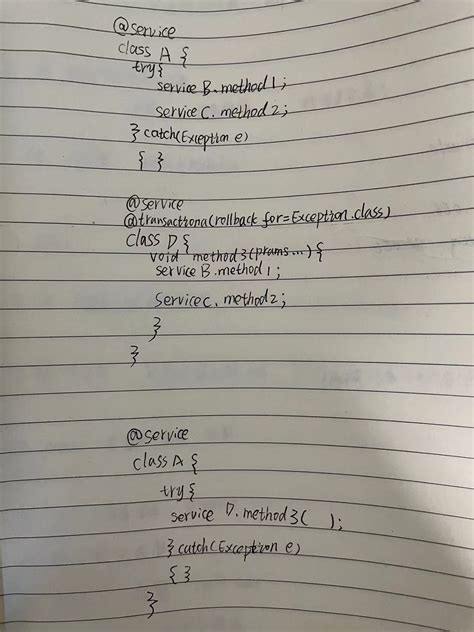 @service
class A {
try{
service B. method1;
service C. method2;
} catch(Exception e)
{ }
@service
@transactiona(rollback for=Exception.class)
class D {
void method3(prams...) {
service B.method1;
service c. method2;
}
}
@service
class A {
try{
service D.method3( );
} catch(Exception e)
{ }
}